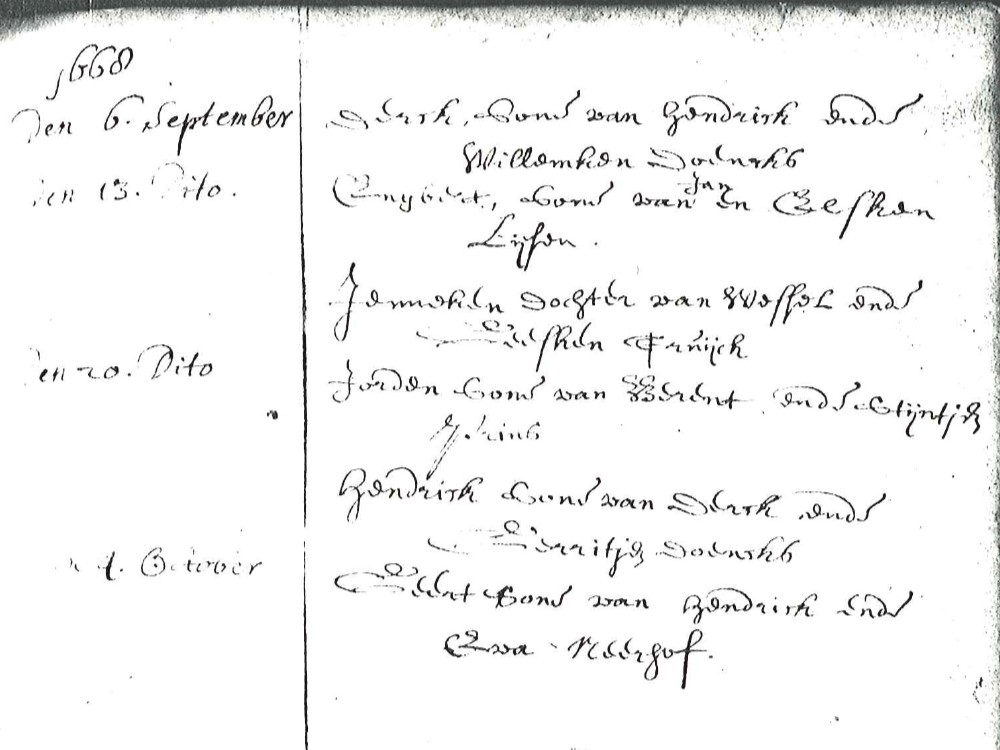 1668
Den 6. September Derck, Sone van Hendrick ende
Willemken Doencks
den 13. Dito. Engbert, Sone van Jan en Gesken
Lijsen.
Jenneken Dochter van Wessel ende
Geesken
den 20. Dito Jorden Sone van Berent ende Stijntjen
Hendrick Sone van Derck ende
Gerritjen Doencks
October Geert Sone van Hendrick ende
Eva Neerhof.